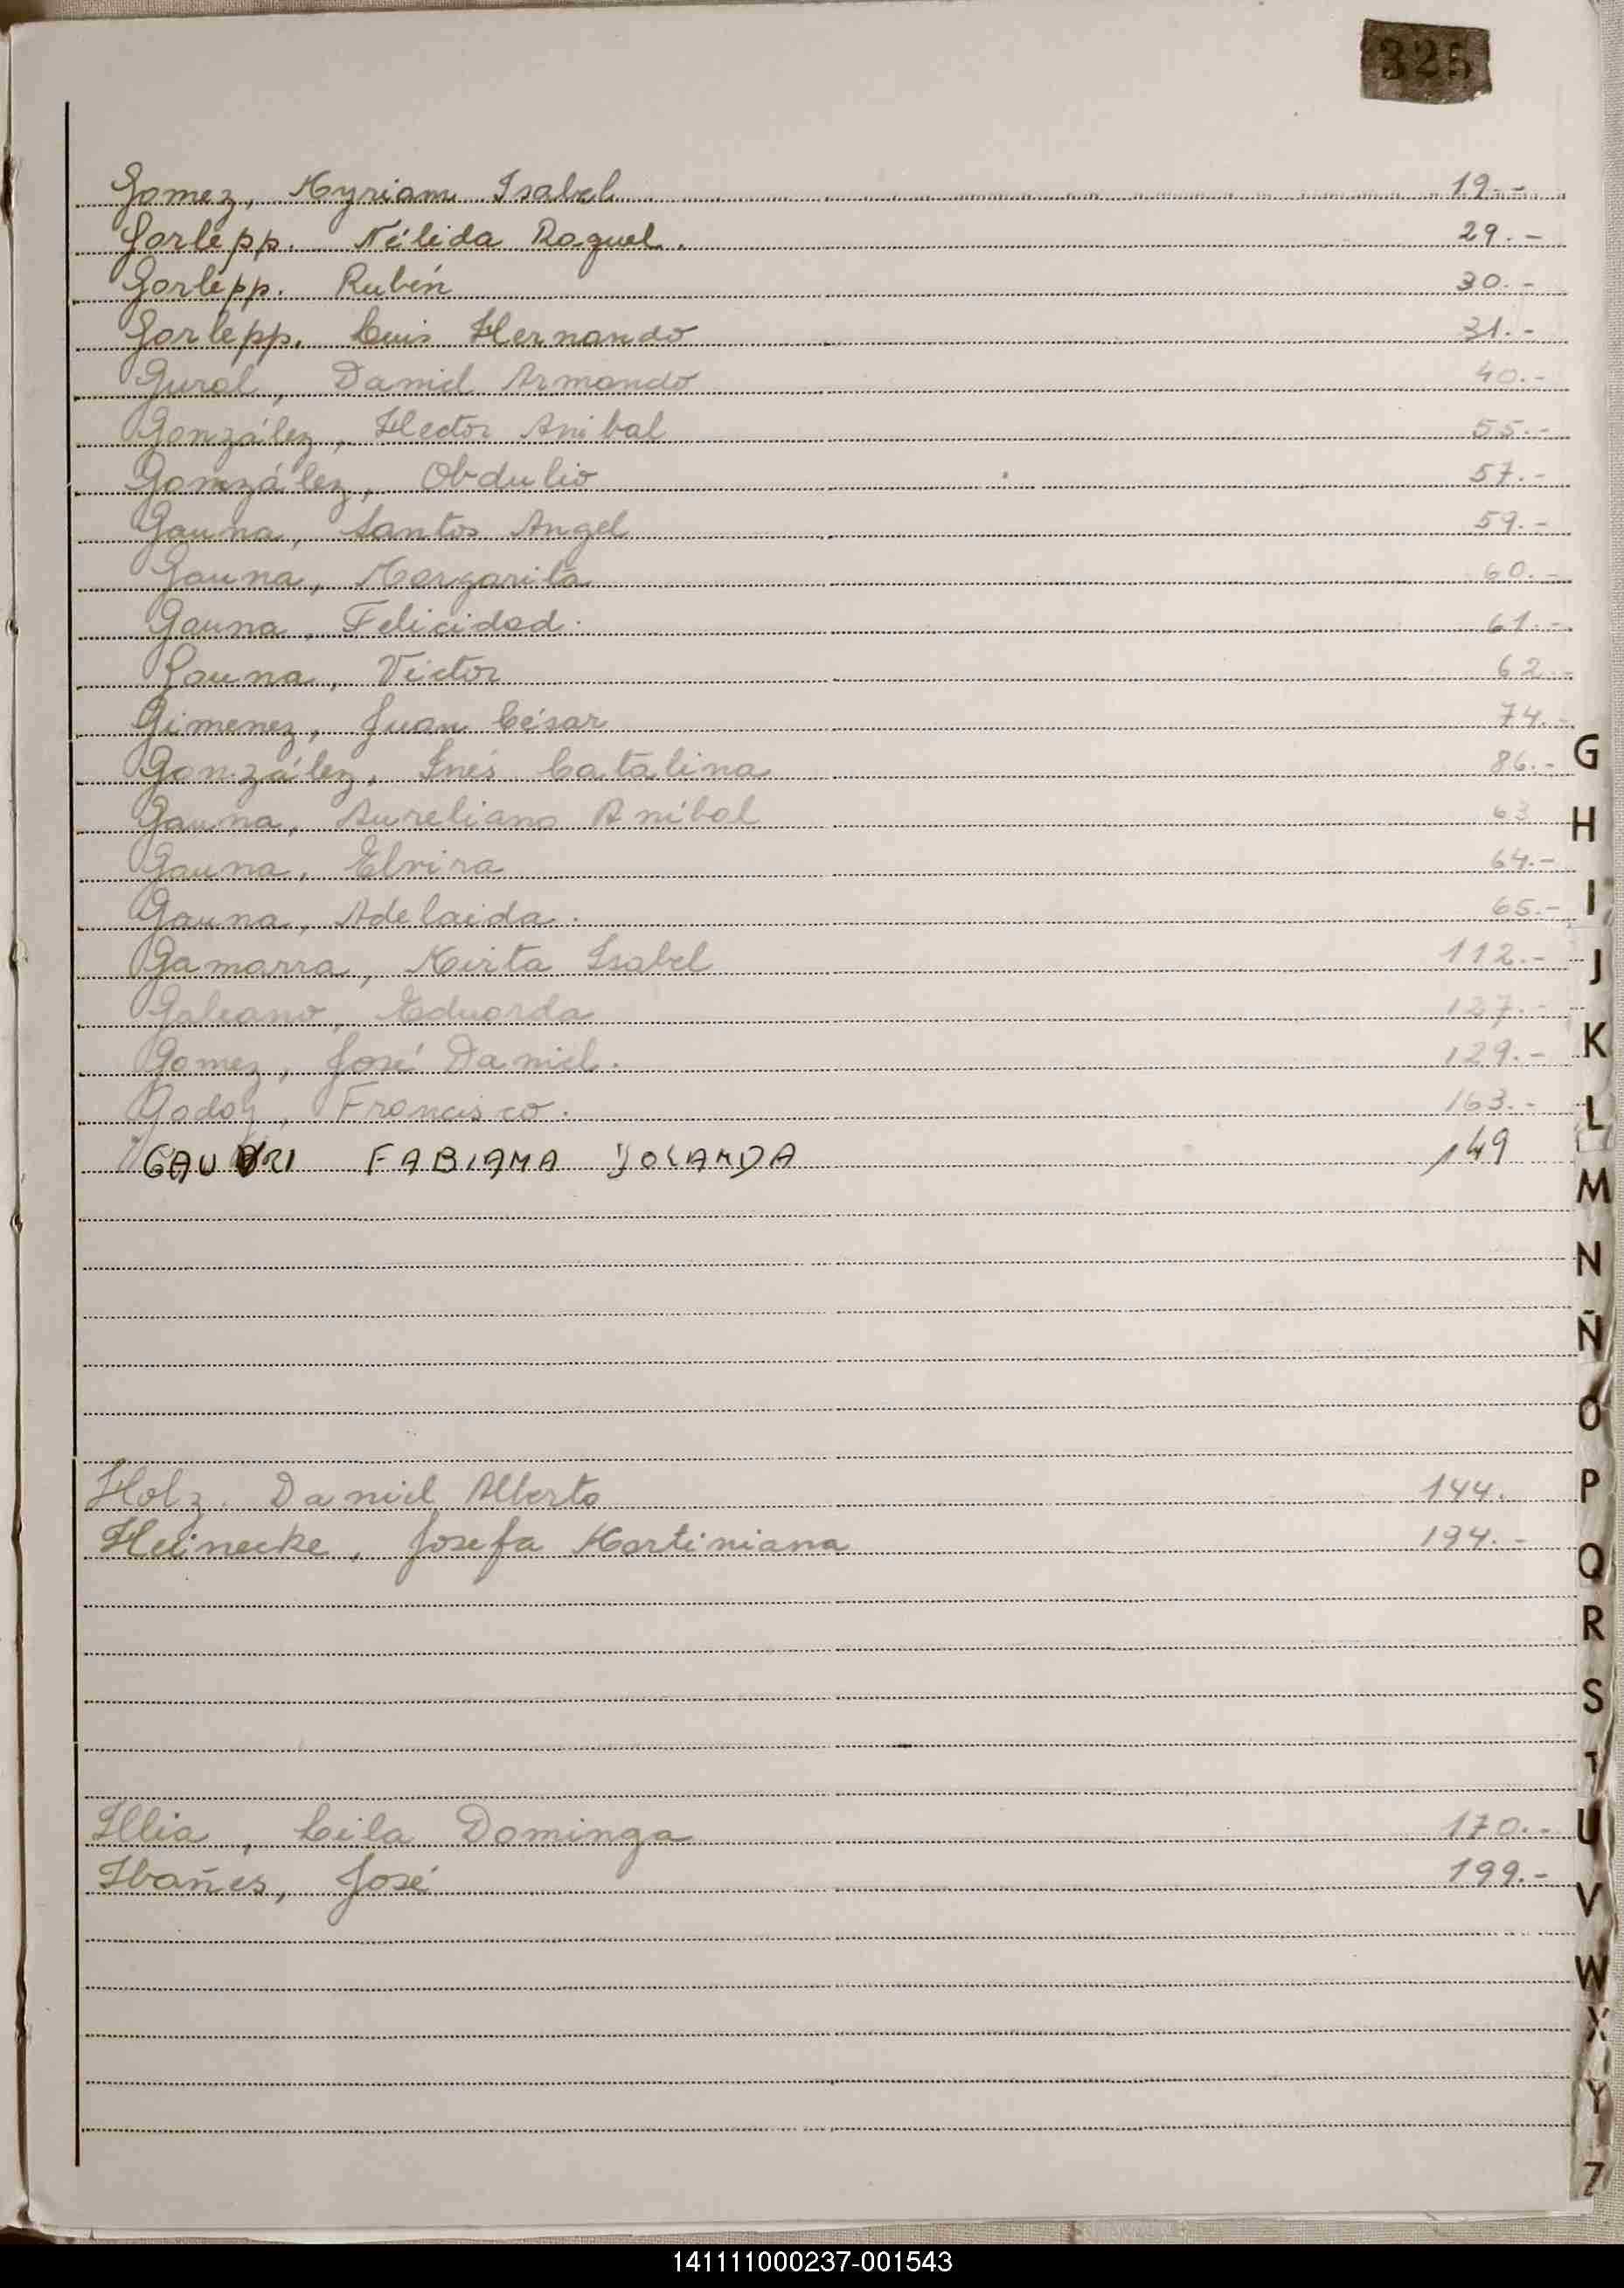 325
Gomez, Myriam Isabel 19.-
Gorlepp. Nélida Raquel. 29.-
Gorlepp. Rubén 30.-
Gorlepp. Luis Hernando 31.-
Gural, Daniel Armando 40.-
González, Hector Anibal 55.-
Gonzalez, Obdulio 57.-
Gauna, Santos Angel 59.-
Gauna, Margarita 60.-
Gauna, Felicidad. 61.-
Gauna, Victor 62.-
Gimenez, Juan César 74.-
González, Inés Catalina 86.-
Gauna, Aureliano Aníbal 63
Gauna, Elvira 64.-
Gauna, Adelaida. 65.-
Gamarra, Mirta Isabel 112.-
Galeano, Eduarda 127.-
Gomez, José Daniel. 129.-
Godoy, Francisco. 163.-
FABIANA YOLANDA 149
Holz. Daniel Alberto 144.
Heinecke, Josefa Martiniana 194.-
Illia, Lila Dominga 170.-
Ibañes, José 199.-
G
H
I
J
K
L
M
N
Ñ
O
P
Q
R
S
T
U
V
W
X
Y
Z
141111000237-001543